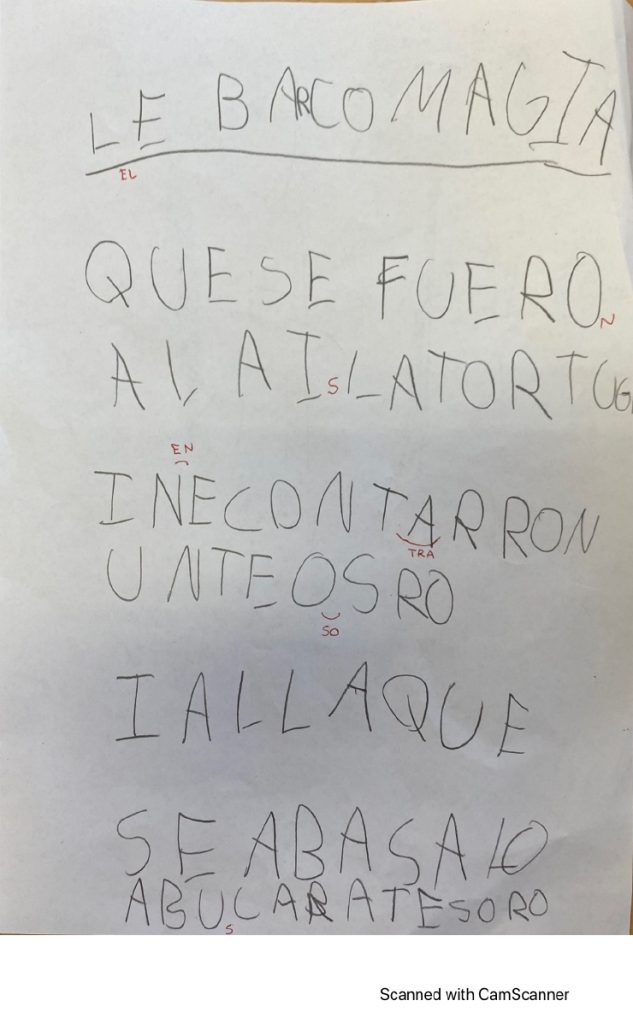 LE BARCO MAGIA
EL
QUESE FUERO
N
ALAISLATORTUG
S
EN
INECONTARRON
TRA
UNTEOSRO
SO
IALLAQUE
SEABASALO
ABUCARATESORO
S
Scanned with CamScanner